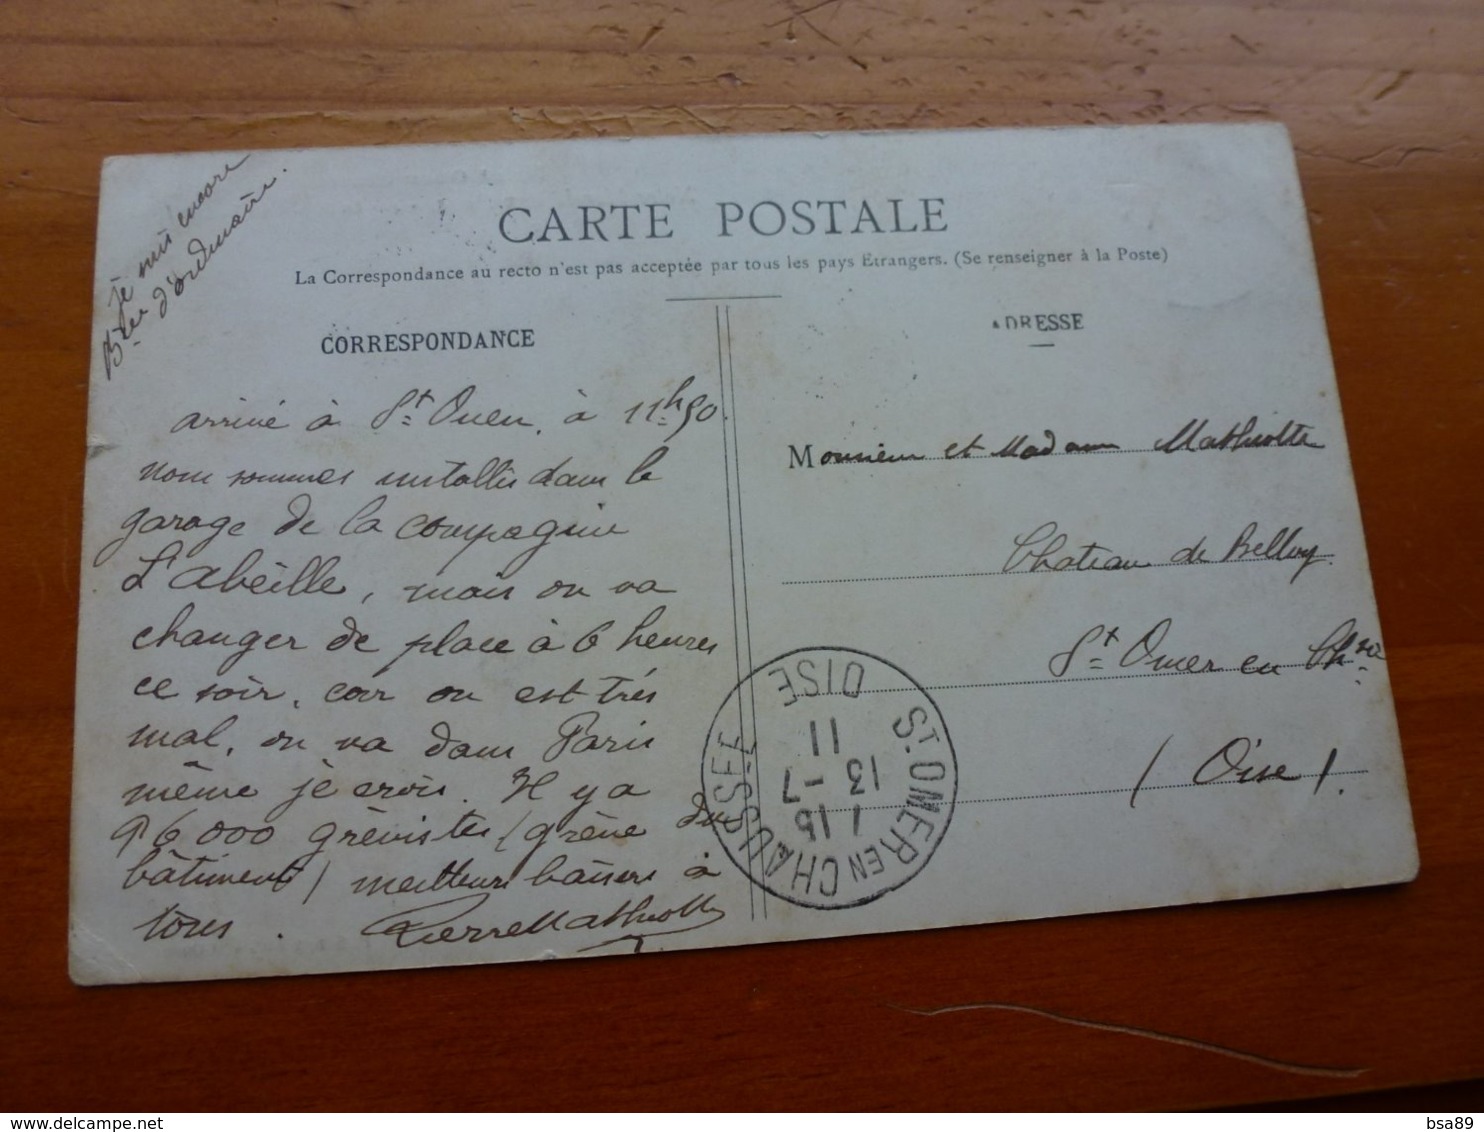 je suis encore
Bier d'ordinaire.
CARTE POSTALE
La Correspondance au recto n'est pas acceptée par tous les pays Etrangers. (Se renseigner à la Poste)
CORRESPONDANCE
arrivé à St Ouen, à 11h50.
nous sommes installés dans le
garage de la compagnie
L'abeille, mais on va
changer de place à 6 heures
ce soir, car on est très
mal, on va dans Paris
même je crois. Il y a
96000 grévistes (grève du
bâtiment) meilleurs baisers à
tous. Pierre Mathiotte
ADRESSE
Monsieur et Madame Mathiotte
Chateau de Belloy.
St Omer en Chsée
(Oise).
ST OMER EN CHAUSSEE
OISE
1 15
13 - 7
11
bsa89